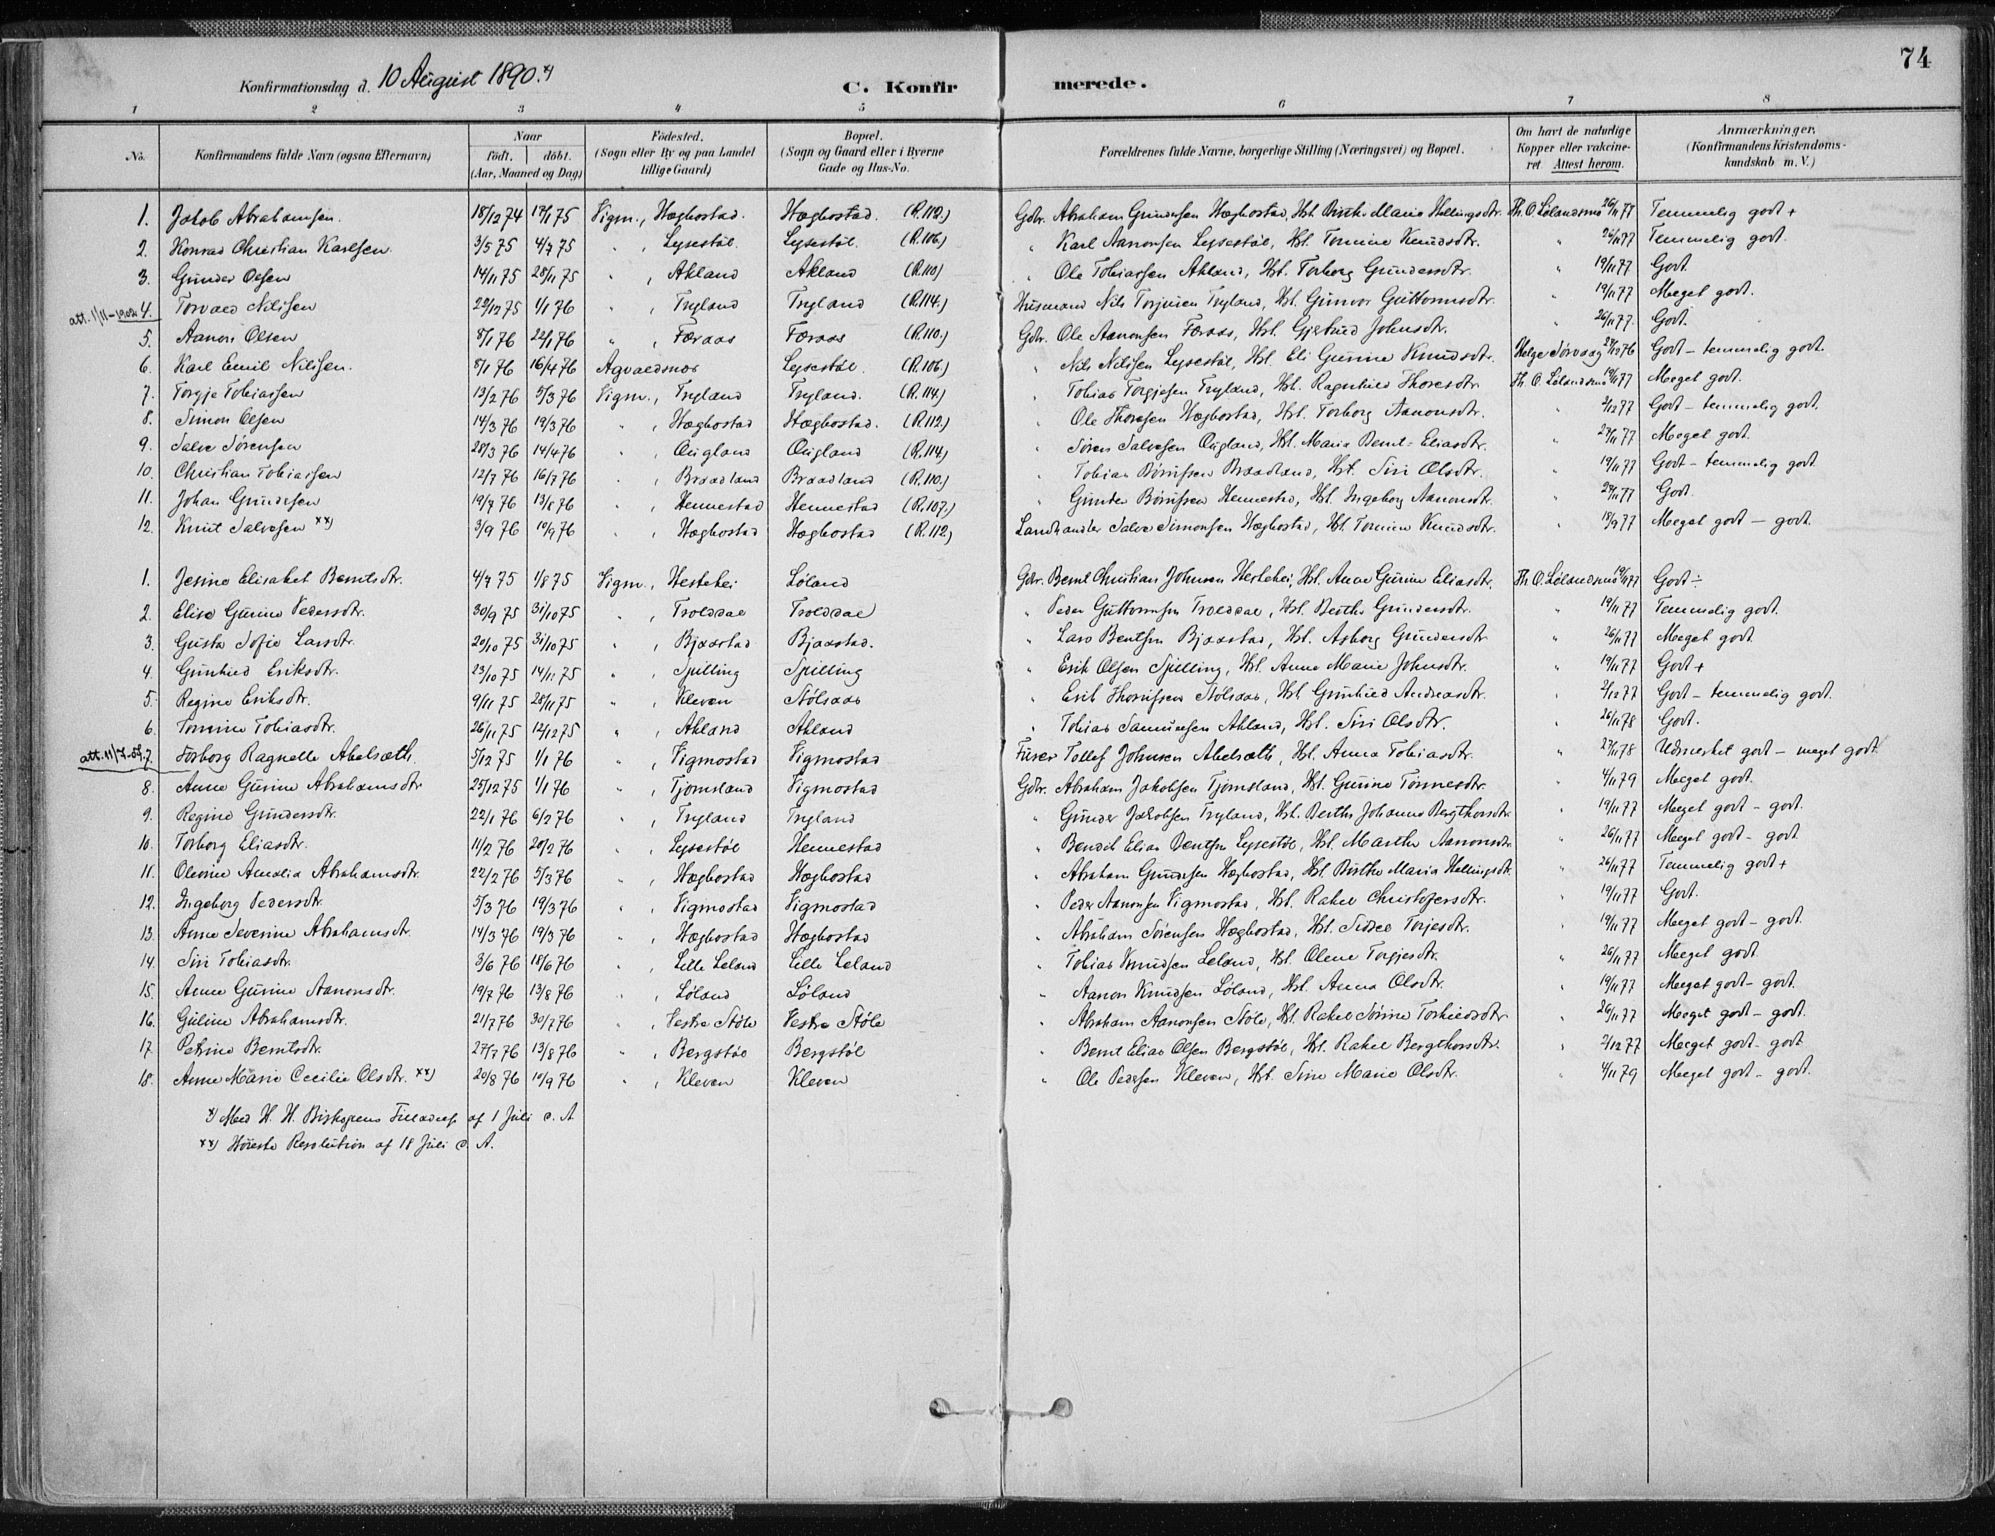 74
Konfirmationsdag d. 10 August 1890. x)
C. Konfirmerede.
1 2 3 4 5 6 7 8
No. Konfirmandens fulde Navn (ogsaa Efternavn) Naar født. døbt. (Aar, Maaned og Dag) Fødested. (Sogn eller By og paa Landet tillige Gaard) Bopæl. (Sogn og Gaard eller i Byerne Gade og Hus-No. Forældrenes fulde Navne, borgerlige Stilling (Næringsvei) og Bopæl. Om havt de naturlige Kopper eller vakcineret Attest herom. Anmærkninger. (Konfirmandens Kristendomskundskab m. V.)
1. Jakob Abrahamsen. 18/12 74 17/1 75 Vigm., Hægbostad. Hægbostad. (R.112.) Gdbr. Abraham Gundersen Hægbostad, Hst. Birthe Maria Hellingsdtr. Th. O. Lølandsmo 26/11 77 Temmelig godt +
2. Konrad Christian Karlsen 3/5 75 4/7 75 " , Lysestøl. Lysestøl. (R.106.) " Karl Aanonsen Lysestøl, Hst. Tomine Knudsdtr. " 26/11 77 Temmelig godt.
3. Gunder Olsen 14/11 75 28/11 75 " , Akland Akland (R.110) " Ole Tobiassen Akland, Hst. Torborg Gundersdtr. " 19/11 77 Godt.
att. 1/11-1902 4. Torvald Nilssen 22/12 75 1/1 76 " , Tryland Tryland (R.114.) Husmand Nils Torjusen Tryland, Hst. Gunvor Guttormsdtr. " 19/11 77 Meget godt.
5. Aanon Olsen 8/1 76 22/1 76 " , Færaas Færaas (R.110.) Gdbr. Ole Aanonsen Færaas, Hst. Gjertrud Johnsdtr. " 26/11 77. Godt.
6. Karl Emil Nilssen. 8/1 76 16/4 76 Agvaldsnes Lysestøl. (R.106.) " Nils Nilssen Lysestøl, Hst. Eli Gurine Knudsdtr. Helge Sørvaag 27/10 76 Godt - temmelig godt.
7. Torgje Tobiassen 13/2 76 5/3 76 Vigm., Tryland Tryland. (R.114.) " Tobias Torgjesen Tryland, Hst. Ragnhild Thoresdtr. Th. O. Lølandsmo 19/11 77 Meget godt.
8. Simon Olsen 14/3 76 19/3 76 " , Hægbostad Hægbostad. (R.112.) " Ole Thoresen Hægbostad, Hst. Torborg Aanonsdtr. " 2/12 77 Godt - temmelig godt.
9. Salve Sørensen 28/3 76 14/4 76 " , Øugland Øugland (R.114) " Søren Salvesen Øugland, Hst. Maria Bernt-Eliasdtr. " 27/11 77 Meget godt.
10. Christian Tobiassen 12/7 76 16/7 76 " , Braadland Braadland (R.110.) " Tobias Børufsen Braadland, Hst. Siri Olsdtr. " 19/11 77 Godt - temmelig godt
11. Johan Gundersen 19/7 76 13/8 76 " , Hennestad Hennestad (R.107.) " Gunder Børufsen Hennestad, Hst. Ingeborg Aanonsdtr. " 27/11 77 Godt.
12. Knut Salvesen xx) 3/9 76 10/9 76 " , Hægbostad Hægbostad (R.112.) Landhandler Salve Simonsen Hægbostad, Hst Tomine Knudsdtr. " 18/9 77 Meget godt - godt.
1. Jesine Elisabet Berntsdtr. 4/7 75 1/8 75 Vigm., Hestehei Løland Gdbr. Bernt Christian Johnsen Hestehei, Hst. Anne Gurine Eliasdtr. Th. O. Lølandsmo 19/11 77 Godt ÷
2. Elise Gurine Pedersdtr. 30/9 75 31/10 75 " , Troldsal Troldsal " Peder Guttormsen Troldsal, Hst. Berthe Gundersdtr. " 19/11 77 Temmelig godt.
3. Gusta Sofie Larsdtr. 20/10 75 31/10 75 " , Bjaastad Bjaastad. " Lars Bentsen Bjaastad, Hst. Asborg Gundersdtr " 26/11 77 Meget godt
4. Gunhild Eriksdtr. 23/10 75 14/11 75 " , Spilling Spilling " Erik Olsen Spilling, Hst. Anne Marie Johnsdtr. " 19/11 77 Godt +
5. Regine Eriksdtr. 9/11 75 28/11 75 " , Kleven Stølsaas " Erik Thorufsen Stølsaas, Hst. Gunhild Andreasdtr. " 2/12 77 Godt - temmelig godt.
6. Tomine Tobiasdtr. 26/11 75 12/12 75 " , Akland Akland " Tobias Samuelsen Akland, Hst. Siri Olsdtr. " 26/11 78 Godt.
att. 11/7-05. 7. Torborg Ragnalle Abelsæth. 5/12 75 1/1 76 " , Vigmostad Vigmostad Furer Tollef Johnsen Abelsæth, Hst. Anna Tobiasdtr. " 27/11 78 Udmerket godt - meget godt.
8. Anne Gurine Abrahamsdtr 25/12 75 1/1 76 " , Tjomsland Vigmostad Gdbr. Abraham Jakobsen Tjomsland, Hst. Gurine Tønnesdtr. " 4/11 79 Meget godt.
9. Regine Gundersdtr. 22/1 76 6/2 76 " , Tryland Tryland " Gunder Jakobsen Tryland, Hst. Berthe Johanne Bergthorsdtr. " 19/11 77 Meget godt - godt.
10. Torborg Eliasdtr. 11/2 76 20/2 76 " , Lysestøl Hennestad " Bendik Elias Bentsen Lysestøl, Hst. Marthe Aanonsdtr. " 26/11 77 Meget godt - godt
11. Olevine Amalia Abrahamsdtr. 22/2 76 5/3 76 " , Hægbostad Hægbostad " Abraham Gundersen Hægbostad, Hst Birthe Maria Hellingsdtr. " 26/11 77 Temmelig godt +
12. Ingeborg Pedersdtr. 5/3 76 19/3 76 " , Vigmostad Vigmostad " Peder Aanonsen Vigmostad, Hst. Rakel Christofersdtr. " 19/11 77 Godt.
13. Anne Severine Abrahamsdtr. 14/3 76 19/3 76 " , Hægbostad Hægbostad " Abraham Sørensen Hægbostad, Hst. Sidsel Torjesdtr. " 19/11 77 Meget godt - godt.
14. Siri Tobiasdtr. 3/6 76 18/6 76 " , Lille Leland Lille Leland " Tobias Knudsen Leland, Hst. Olene Torgjesdtr. " 26/11 77 Meget godt
15. Anne Gurine Aanonsdtr. 19/7 76 13/8 76 " , Løland Løland " Aanon Knudsen Løland, Hst. Anna Olsdtr. " 19/11 77 Meget godt - godt.
16. Guline Abrahamsdtr. 21/7 76 30/7 76 " , Vestre Støle Vestre Støle " Abraham Aanonsen Støle, Hst. Rakel Sørine Torkildsdtr " 26/11 77 Meget godt - godt.
17. Petrine Berntsdtr. 27/7 76 13/8 76 " , Bergstøl Bergstøl " Bernt Elias Olsen Bergstøl, Hst. Rakel Bergthorsdtr. " 2/12 77 Meget godt - godt
18. Anne Marie Cecilie Olsdtr. xx) 20/8 76 10/9 76 " , Kleven Kleven " Ole Pedersen Kleven, Hst. Sine Marie Olsdtr. " 4/11 79 Meget godt - godt.
x) Med H. H. Biskopens Tilladelse af 1 Juli d. A
xx) Høieste Resolution af 18 Juli d. A.